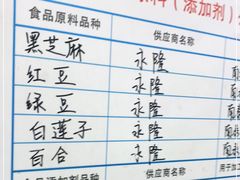 料（添加剂）
食品原料品种 供应商名称
黑芝麻 永隆
红豆 永隆
绿豆 永隆
白莲子 永隆
百合 永隆
食品添加剂品种 供应商名称 用于加工